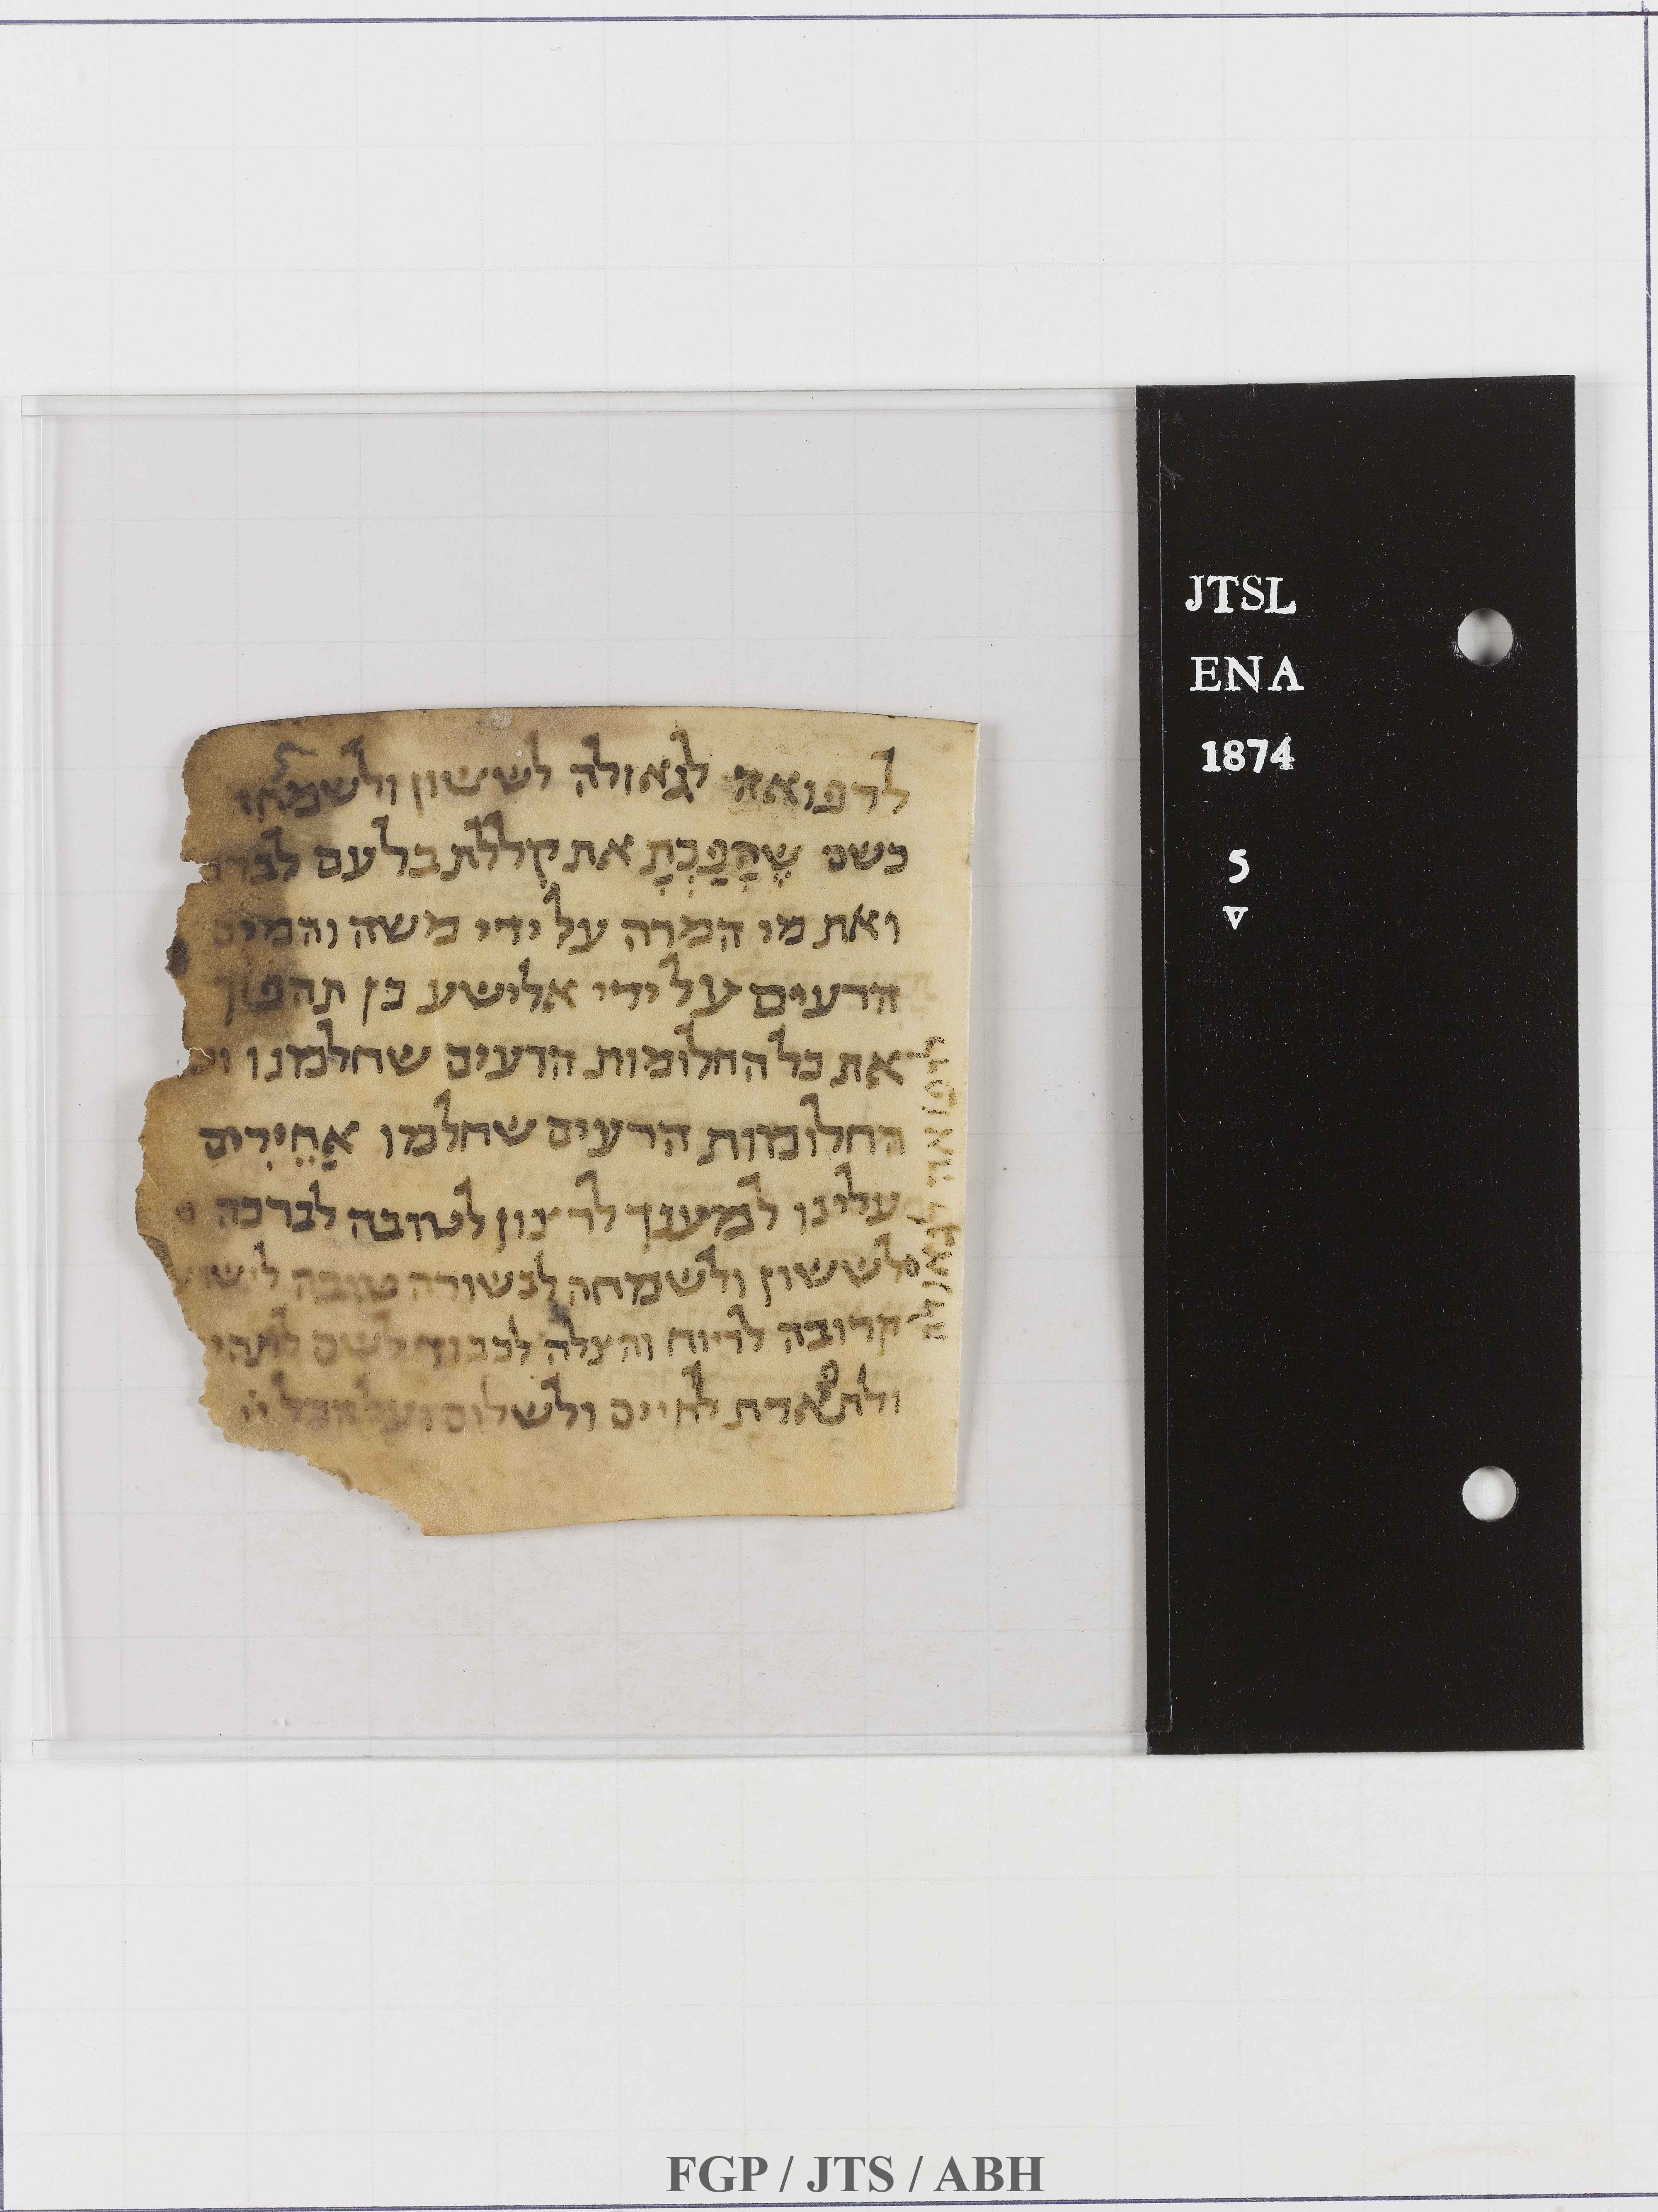 לרפואה לגאולה לששון ולשמחו
כשם שֶהָפַכְתָ את קללת בלעם לברכ
ואת מי המרה על ידי משה והמים
הרעים על ידי אלישע כן תהפוך
את כל החלומות הרעים שחלמנו וכ
החלומות הרעים שחלמו אָחֵירִים
עלינו למענך לרצון לטובה לברכה
לששון ולשמחה לבשורה טובה לישו
קרובה לריוח והצלה לכבוד לשם לתהי
ולתפארת לחיים ולשלום ועל הכל יי
לרפואה לגאולה
JTSL
ENA
1874
5
v
FGP / JTS / ABH